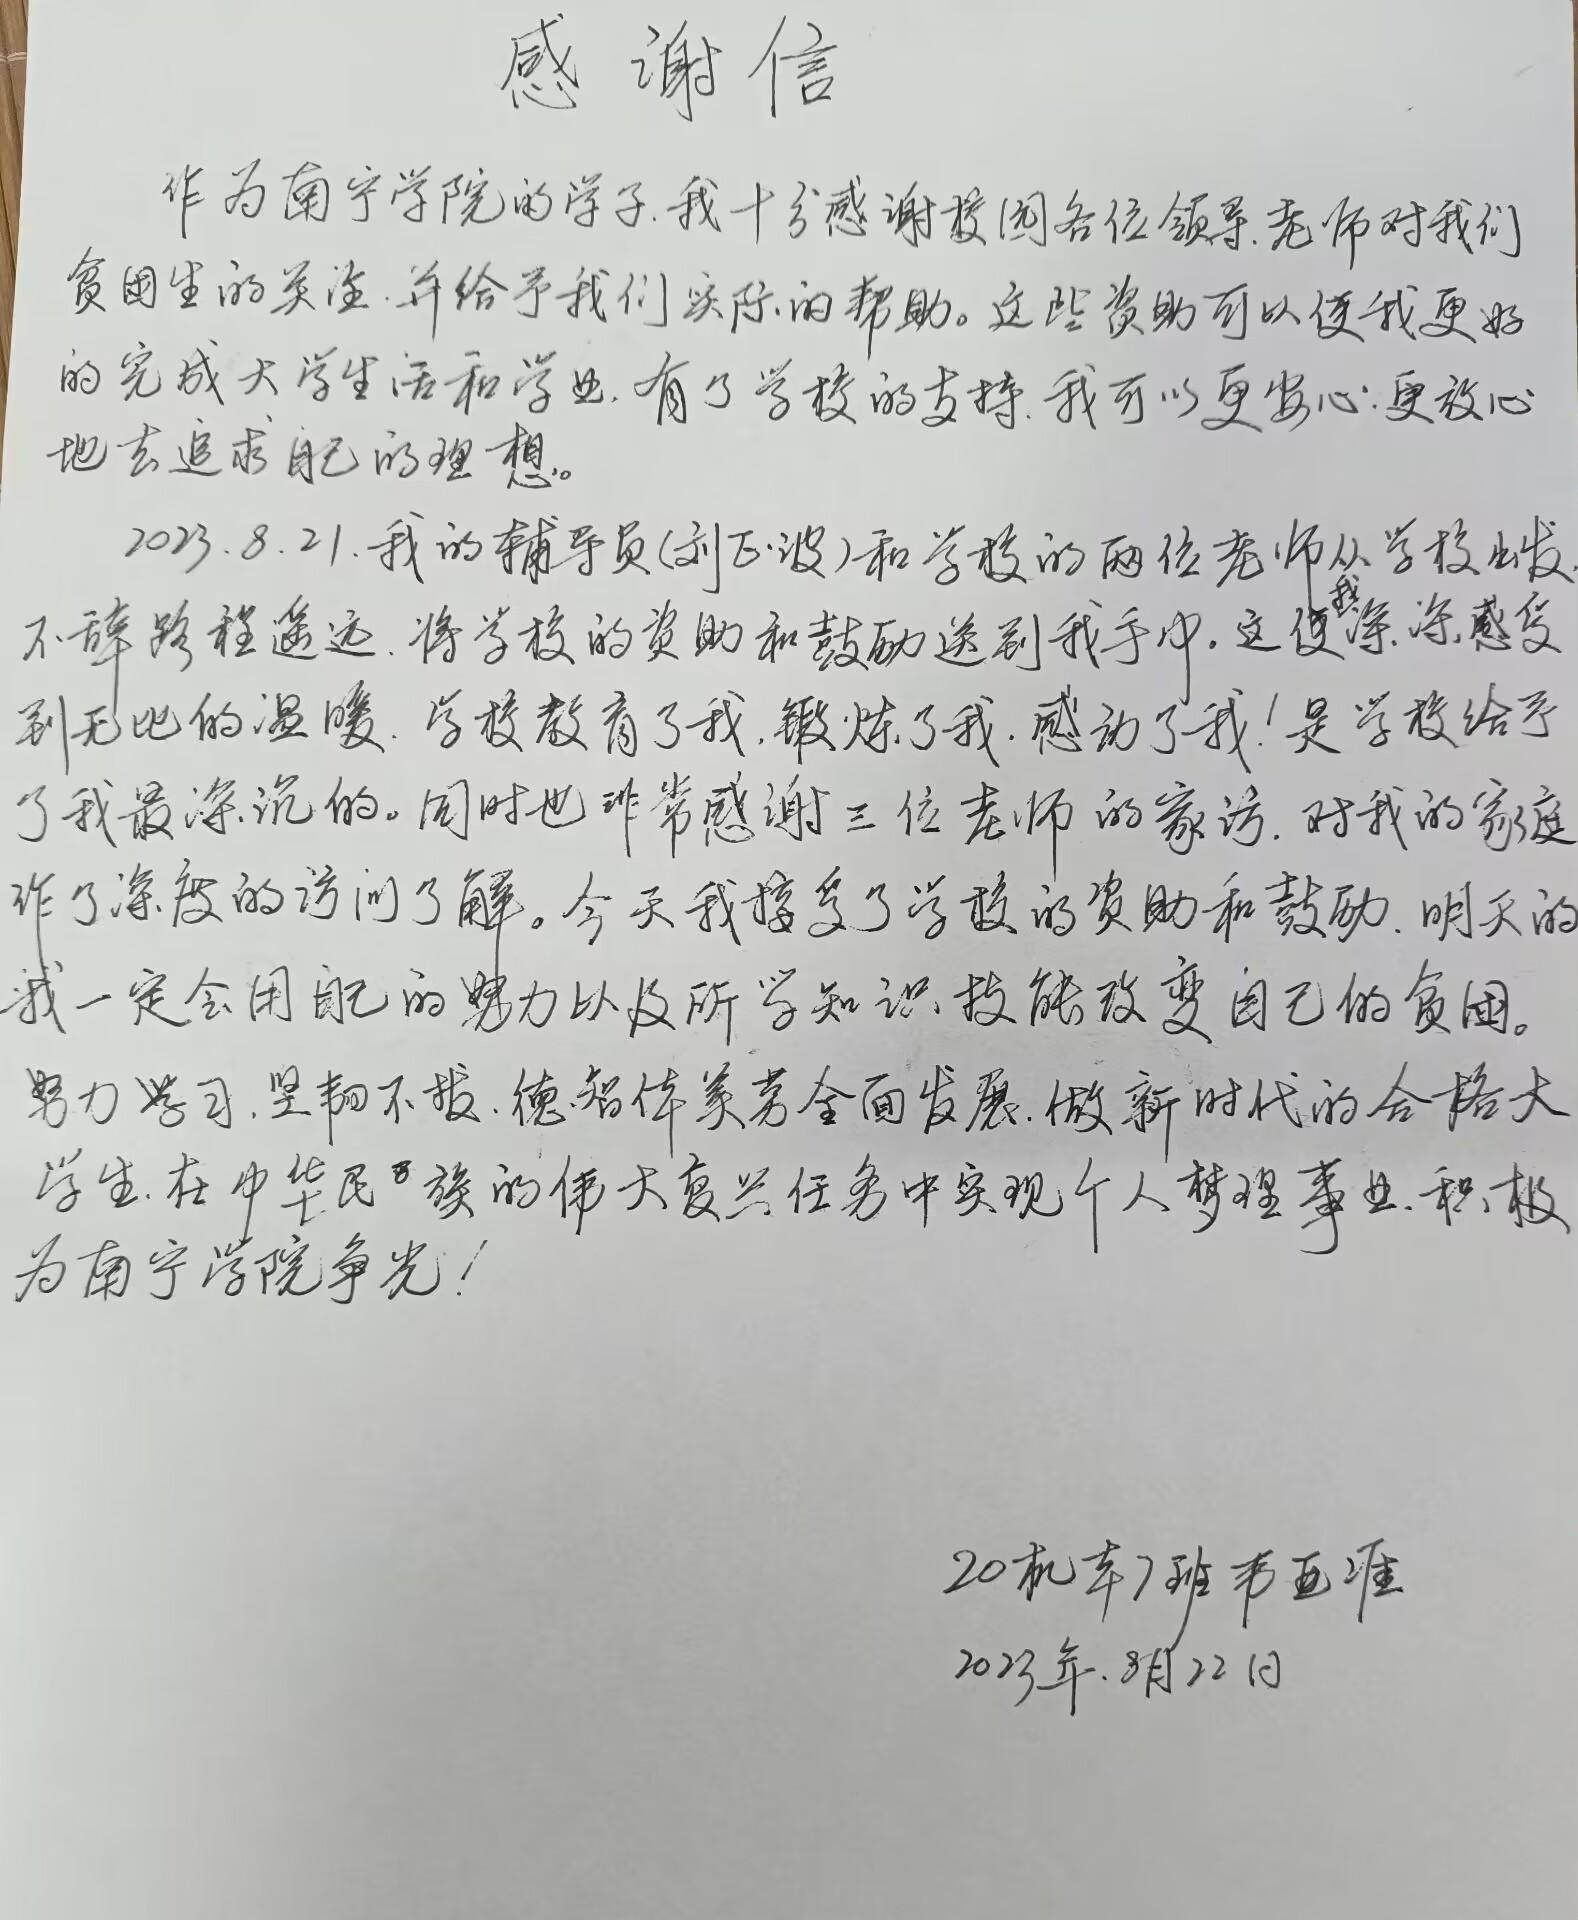 感谢信
作为南宁学院的学子,我十分感谢校园各位领导、老师对我们
贫困生的关注,并给予我们实际的帮助。这些资助可以使我更好
的完成大学生活和学业,有了学校的支持,我可以更安心、更放心
地去追求自己的理想。
2023.8.21,我的辅导员(刘正波)和学校的两位老师从学校出发,
不辞路程遥远,将学校的资助和鼓励送到我手中。这使我深深感受
到无比的温暖,学校教育了我,锻炼了我,感动了我!是学校给予
了我最深沉的。同时也非常感谢三位老师的家访,对我的家庭
作了深度的访问了解。今天我接受了学校的资助和鼓励,明天的
我一定会用自己的努力以及所学知识技能改变自己的贫困。
努力学习,坚韧不拔,德智体美劳全面发展,做新时代的合格大
学生,在中华民族的伟大复兴任务中实现个人梦理事业,积极
为南宁学院争光!
20机本7班韦
2023年.8月22日